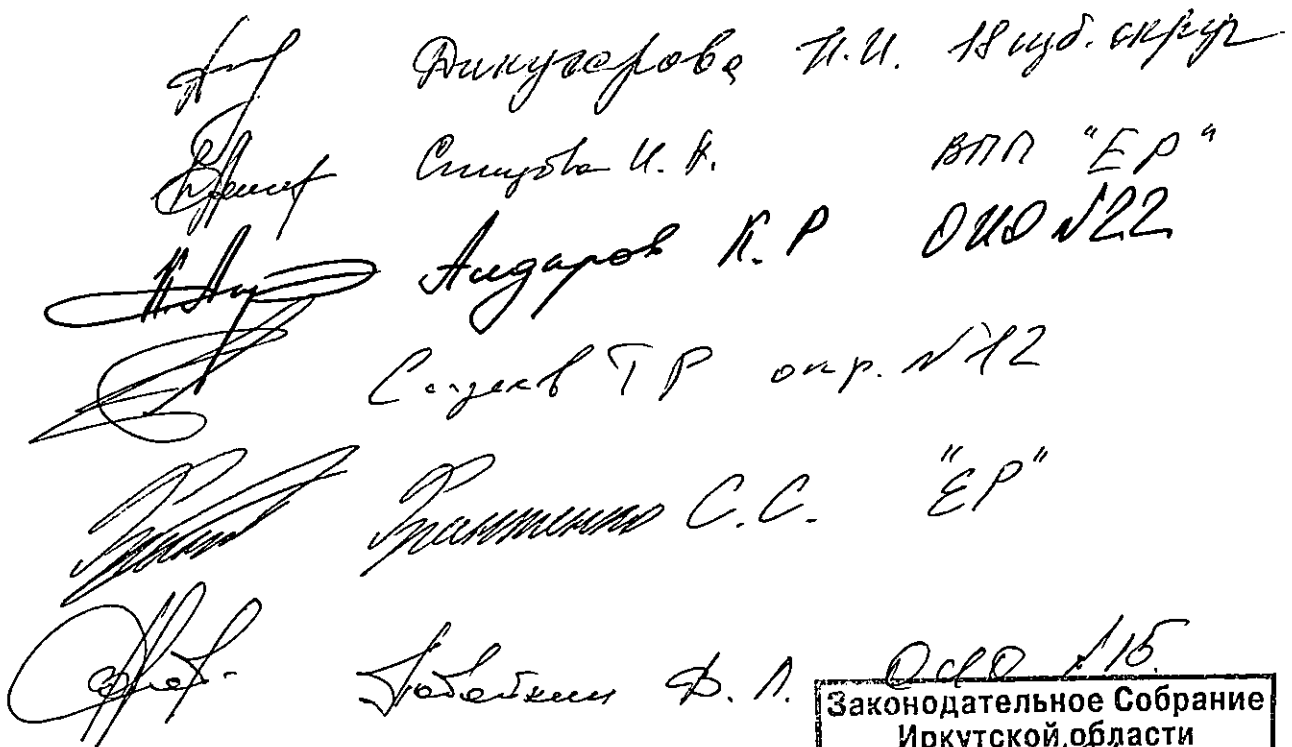 Дикусарова Н.И. 18 изб. округ
Синцова И.К. ВПП "ЕР"
Алдаров К.Р ОИО №22
Сагдеев Т Р окр. №12
Франтенко С.С. "ЕР"
Лобойкин Д.Л. ОИО №15
Законодательное Собрание
Иркутской области